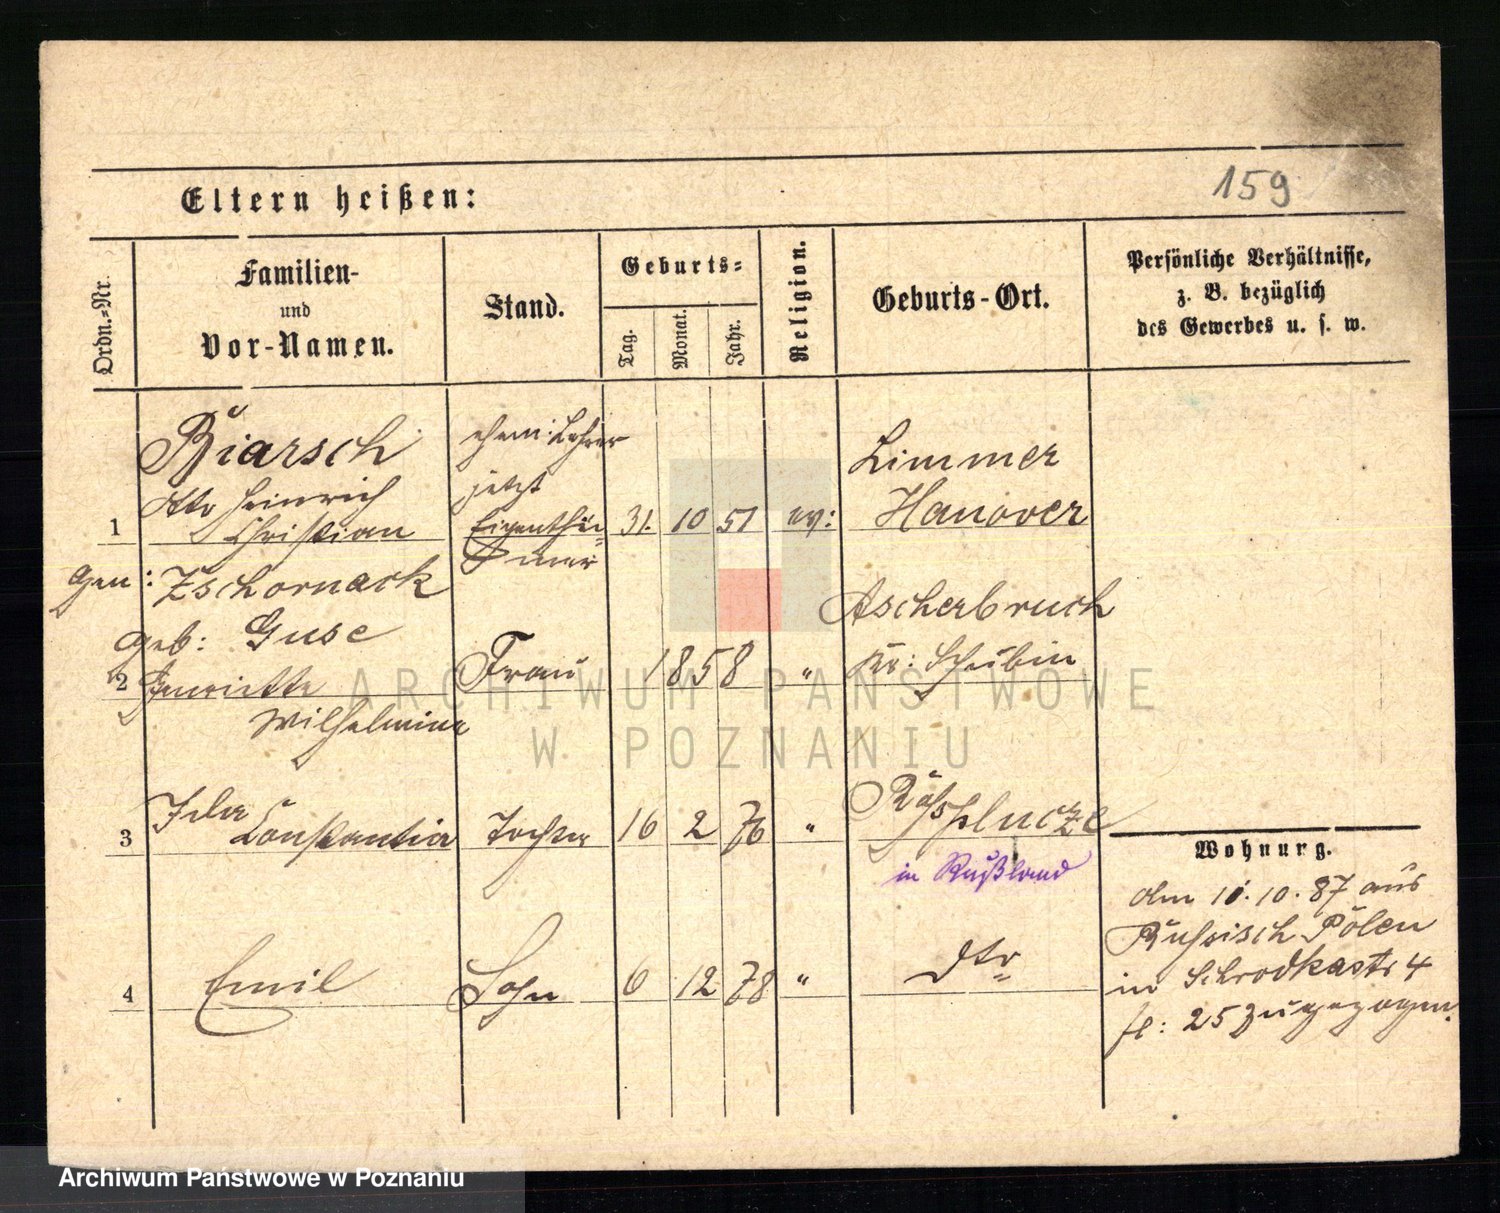 159
Eltern heißen:
Ordn.-Nr.
Familien-
und
Vor-Namen.
Stand.
Geburts-
Tag.
Monat.
Jahr.
Religion.
Geburts-Ort.
Persönliche Verhältnisse,
z. B. bezüglich
des Gewerbes u. s. w.
Biarsch
Otto Heinrich
Christian
1
ehem: Lehrer
jetzt
Eigenthü-
mer
31. 10 51 ev:
Limmer
Hanover
gen: Zschornack
geb: Guse
2 Henriette
Wilhelmine
Frau
1858 "
Ascherbruch
Kr: Schubin
3
Ida
Constantia
Tochter
16 2 76 "
in Rußland
4
Emil
Sohn
6 12 78 "
dto
Wohnung.
10.87 aus
Russisch Polen
in Schrodkastr 4
25 zugezogen.
ARCHIWUM PAŃSTWOWE
W POZNANIU
Archiwum Państwowe w Poznaniu